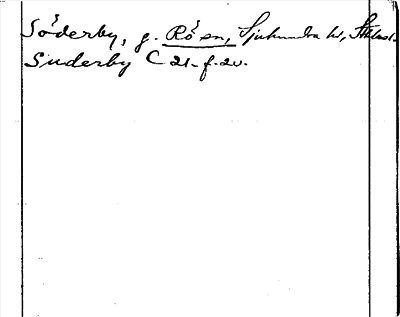 Söderby, g. Röen, Sjuhundra hd, Sthlms l.
Suderby C 21 f. 20.